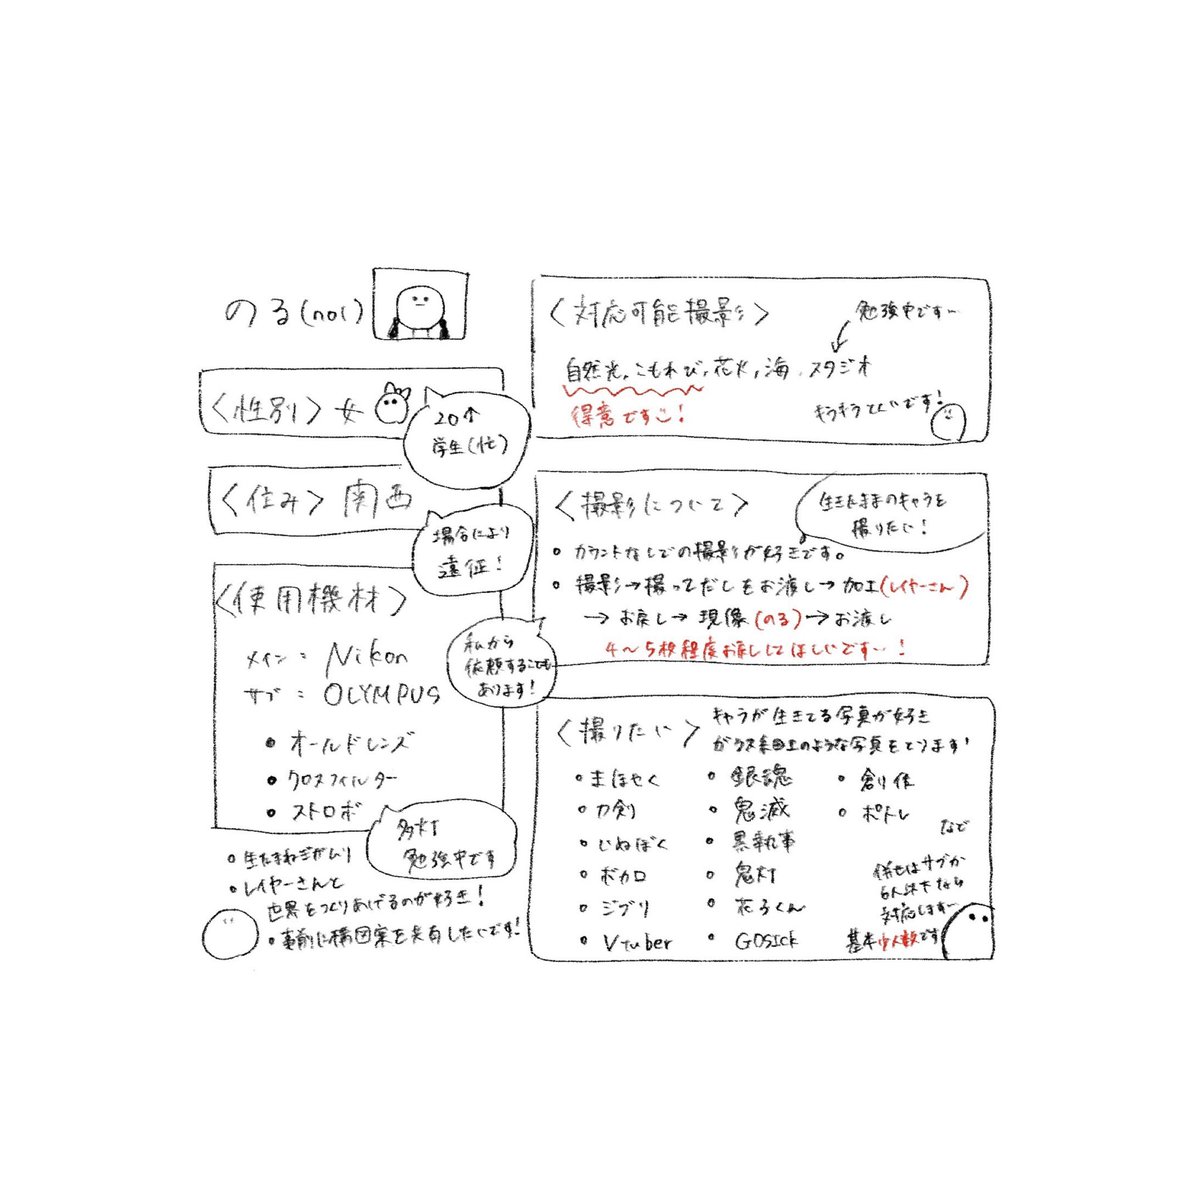 のる(nol)
〈性別〉女
20↑
学生(忙)
〈住み〉関西
場合により
遠征!
〈使用機材〉
メイン: Nikon
サブ: OLYMPUS
・オールドレンズ
・クロスフィルター
・ストロボ
私から
依頼することも
あります!
多灯
勉強中です
・レイヤーさんと
世界をつくりあげるのが好き!
・事前に構図案を共有したいです!
〈対応可能撮影〉
勉強中です…
自然光,こもれび,花火,海,スタジオ
得意ですこ!
〈撮影について〉
生きたままのキャラを
撮りたい!
・カウントなしでの撮影が好きです。
・撮影→撮ってだしをお渡し→加工(レイヤーさん)
→お戻し→現像(のる)→お渡し
4〜5枚程度お戻ししてほしいです…!
〈撮りたい〉
キャラが生きてる写真が好き
ガラス細工のような写真をとります!
・まほやく
・刀剣
・いぬぼく
・ボカロ
・ジブリ
・Vtuber
・銀魂
・鬼滅
・黒執事
・鬼灯
・花子くん
・GOSICK
・創作
・ポトレ
など
併せはサブか
6人以下なら
対応します…
基本少人数です